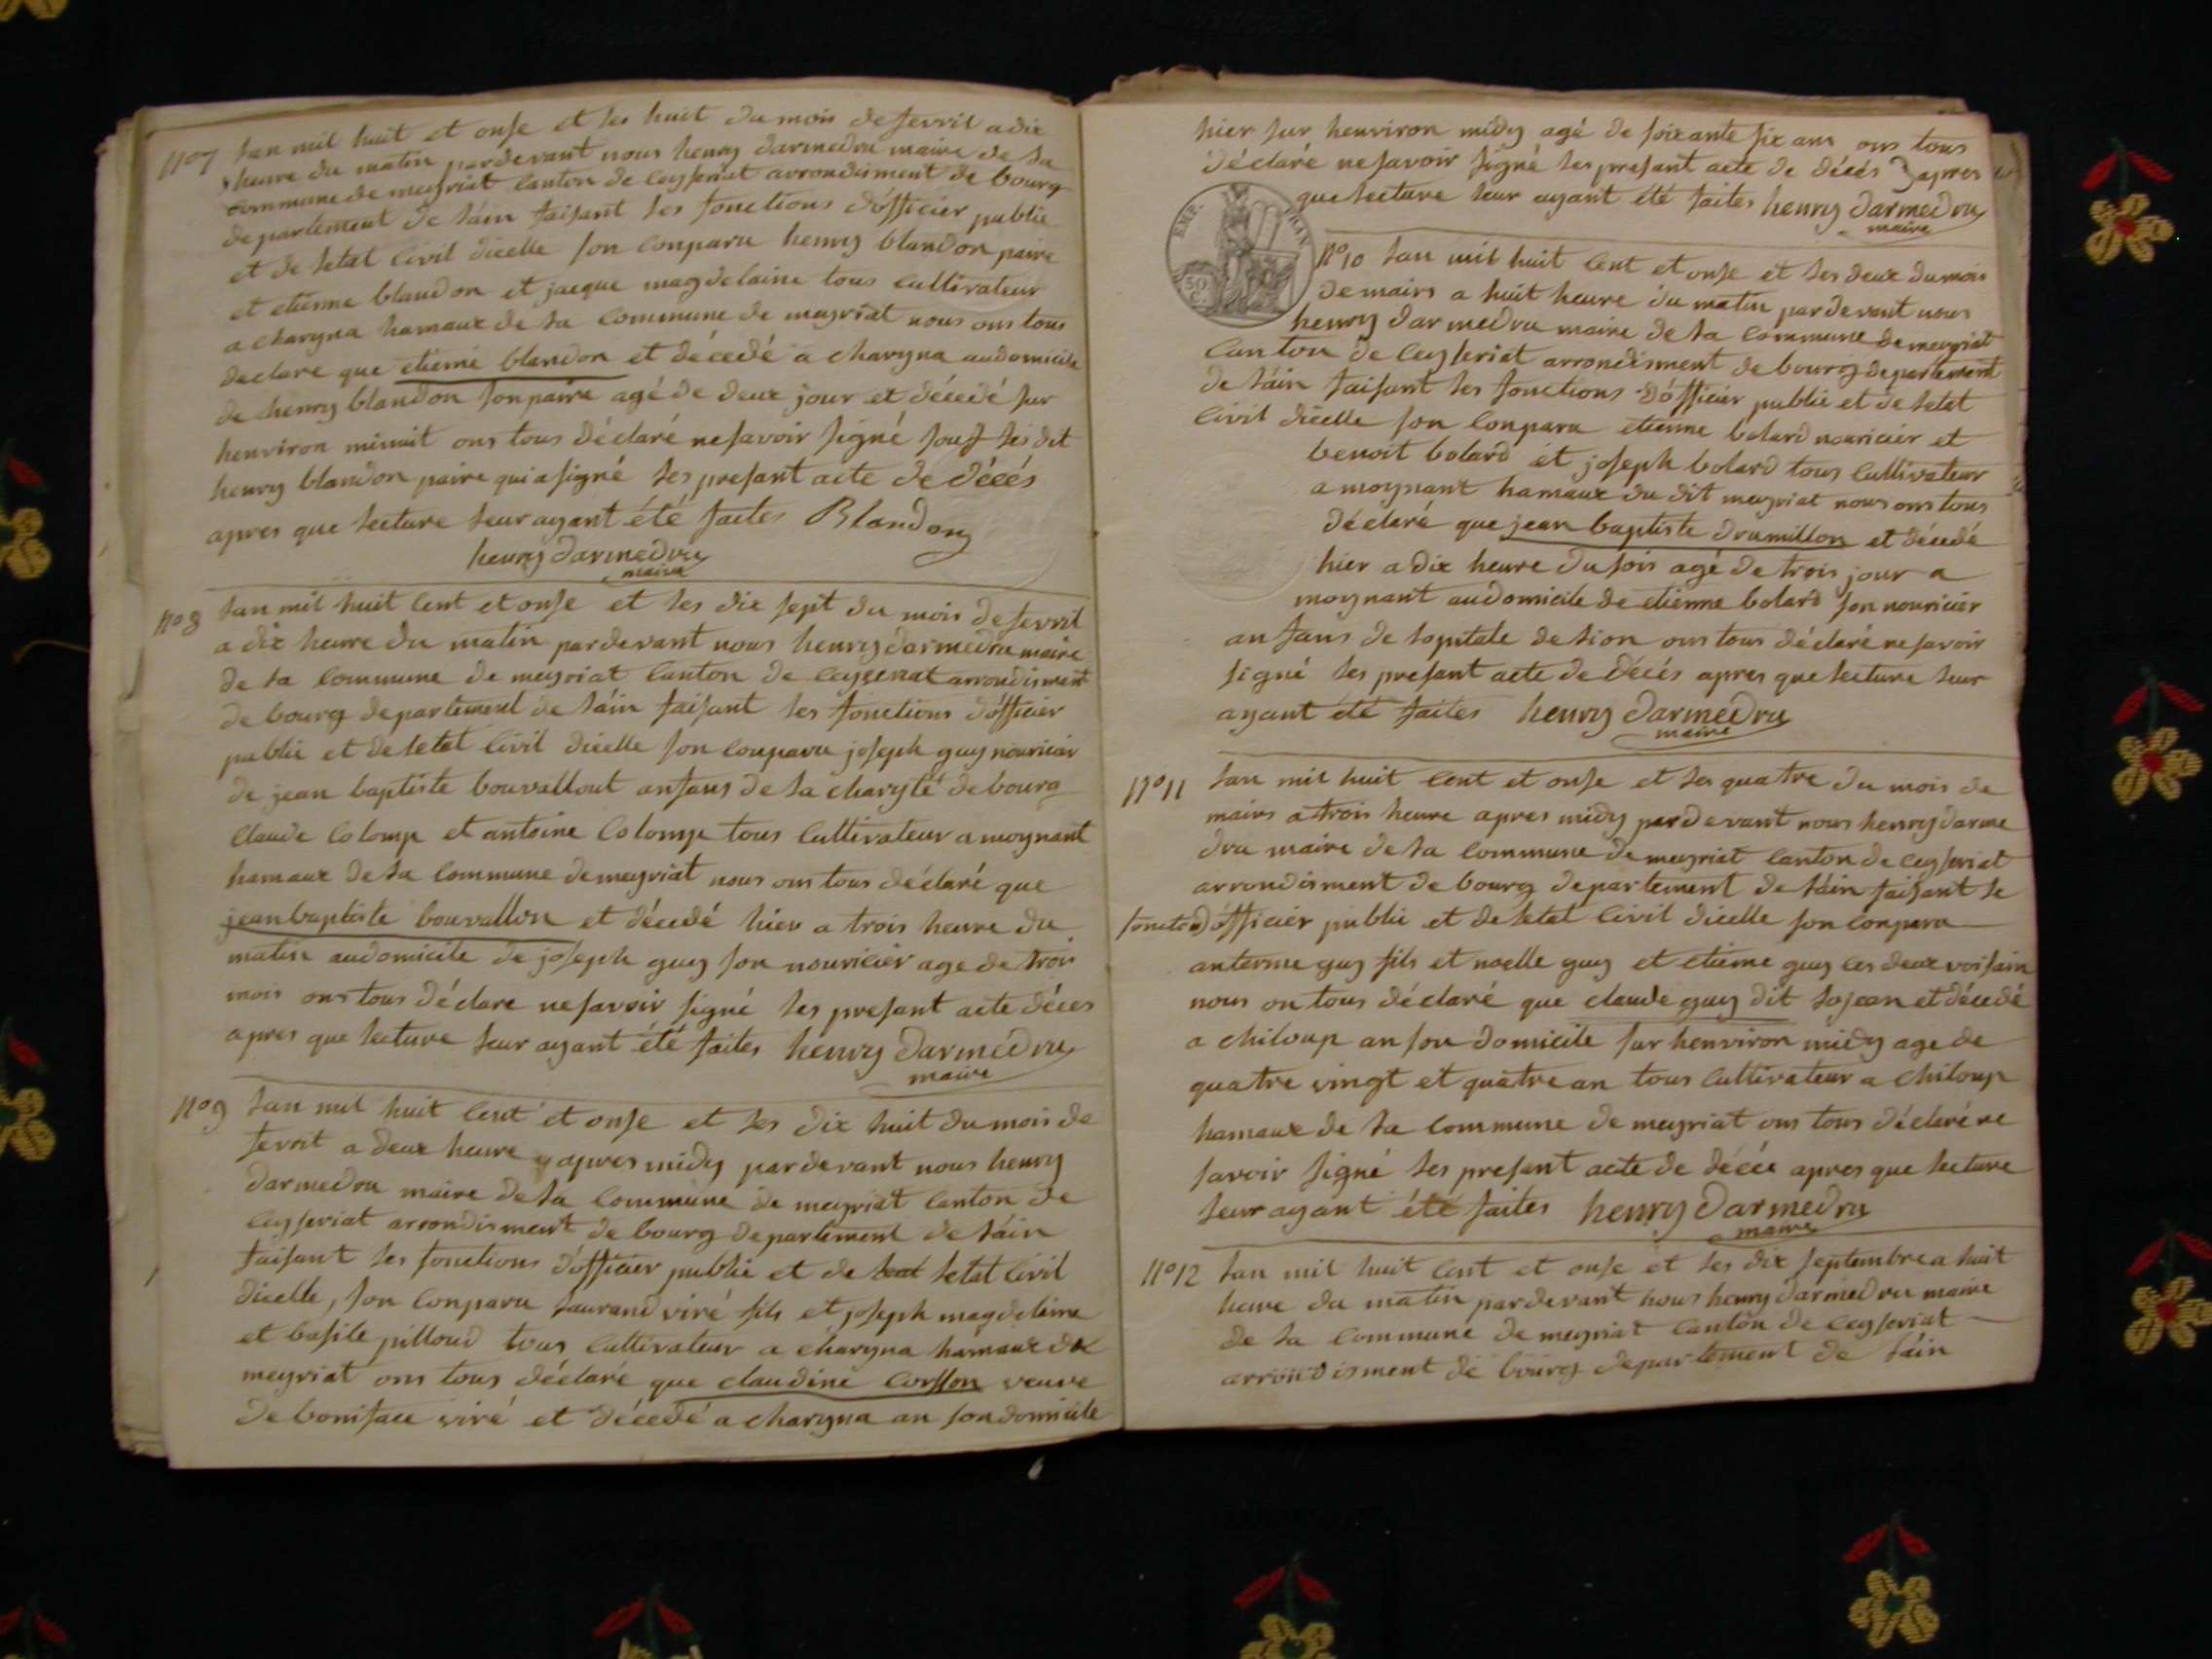 n°7 lan mil huit et onse et les huit du mois de fevril a dix
heure du matin pardevant nous henry darmedru maire de la
commune de meyriat canton de ceyseriat arrondisment de bourg
departement de l'áin faisant les fonctions dófficier public
et de letat civil dicelle son conparu henry blandon paire
et etienne blandon et jacque magdelaine tous cultivateur
a charyna hamaux de la commune de meyriat nous ons tous
declare que etiene blandon et décedé a charyna audomicile
de henry blandon son paire agé de deux jour et décedé sur
henviron minuit ons tous déclaré ne savoir signé souf les dit
henry blandon paire qui a signé les presant acte de décés
apres que lecture leur ayant été faites Blandon
henry darmedru
maire
n°8 lan mil huit cent et onse et les dix sept du mois de fevril
a dix heure du matin pardevant nous henry darmedru maire
de la commune de meyriat canton de ceyseriat arrondisment
de bourg departement de l'áin faisant les fonctions dófficier
public et de letat civil dicelle son conparu joseph guy nouricier
de jean baptiste bouvallout anfans de la charyté de bourg
claude colomp et antoine colomp tous cultivateur a moynant
hamaux de la commune de meyriat nous ons tous déclaré que
jean baptiste bouvallon et décedé hier a trois heure du
matin audomicile de joseph guy son nouricier age de trois
mois ons tous déclare ne savoir signé les presant acte déces
apres que lecture leur ayant été faites henry darmedru
maire
n°9 lan mil huit cent et onse et les dix huit du mois de
fevrit a deux heure apres midy pardevant nous henry
darmedru maire de la commune de meyriat canton de
ceyseriat arrondisment de bourg departement de l'áin
faisant les fonctions dófficier public et de letat civil
dicelle, son conparu laurand viré fils et joseph magdeleine
et basile pilloud tous cultivateur a charyna hamaux de
meyriat ons tous déclaré que claudine corsson veuve
de boniface viré et décedé a charyna an son domicile
hier sur henviron midy agé de soixante six ans ons tous
déclaré ne savoir signé les presant acte de décés apres
que lecture leur ayant été faites henry darmedru
maire
EMP. FRAN.
50 C.
n°10 lan mil huit cent et onse et les deux du mois
de mairs a huit heure du matin pardevant nous
henry darmedru maire de la commune de meyriat
canton de ceyseriat arrondisment de bourg departement
de l'áin faisant les fonctions dófficier public et de letat
civil dicelle son conparu etienne bolard nouricier et
benoit bolard et joseph bolard tous cultivateur
a moynant hamaux du dit meyriat nous ons tous
déclaré que jean baptiste drumillon et décedé
hier a dix heure du soir agé de trois jour a
moynant audomicile de etienne bolard son nouricier
anfans de lopitale de lion ons tous déclaré ne savoir
signé les presant acte de décés apres que lecture leur
ayant été faites henry darmedru
maire
n°11 lan mil huit cent et onse et les quatre du mois de
mairs a trois heure apres midy pardevant nous henry darme
dru maire de la commune de meyriat canton de ceyseriat
arrondisment de bourg departement de l'áin faisant le
foncton dófficier public et de letat civil dicelle son conparu
anterme guy fils et noelle guy et etiene guy ces deux voisain
nous on tous déclaré que claude guy dit lajean et décedé
a chiloup an son domicile sur henviron midy age de
quatre vingt et quatre an tous cultivateur a chiloup
hamaux de la commune de meyriat ons tous déclaré ne
savoir signé les presant acte de décée apres que lecture
leur ayant été faites henry darmedru
maire
n°12 lan mil huit cent et onse et les dix septembre a huit
heure du matin pardevant nous henry darmedru maire
de la commune de meyriat canton de ceyseriat
arrondisment de bourg departement de l'áin